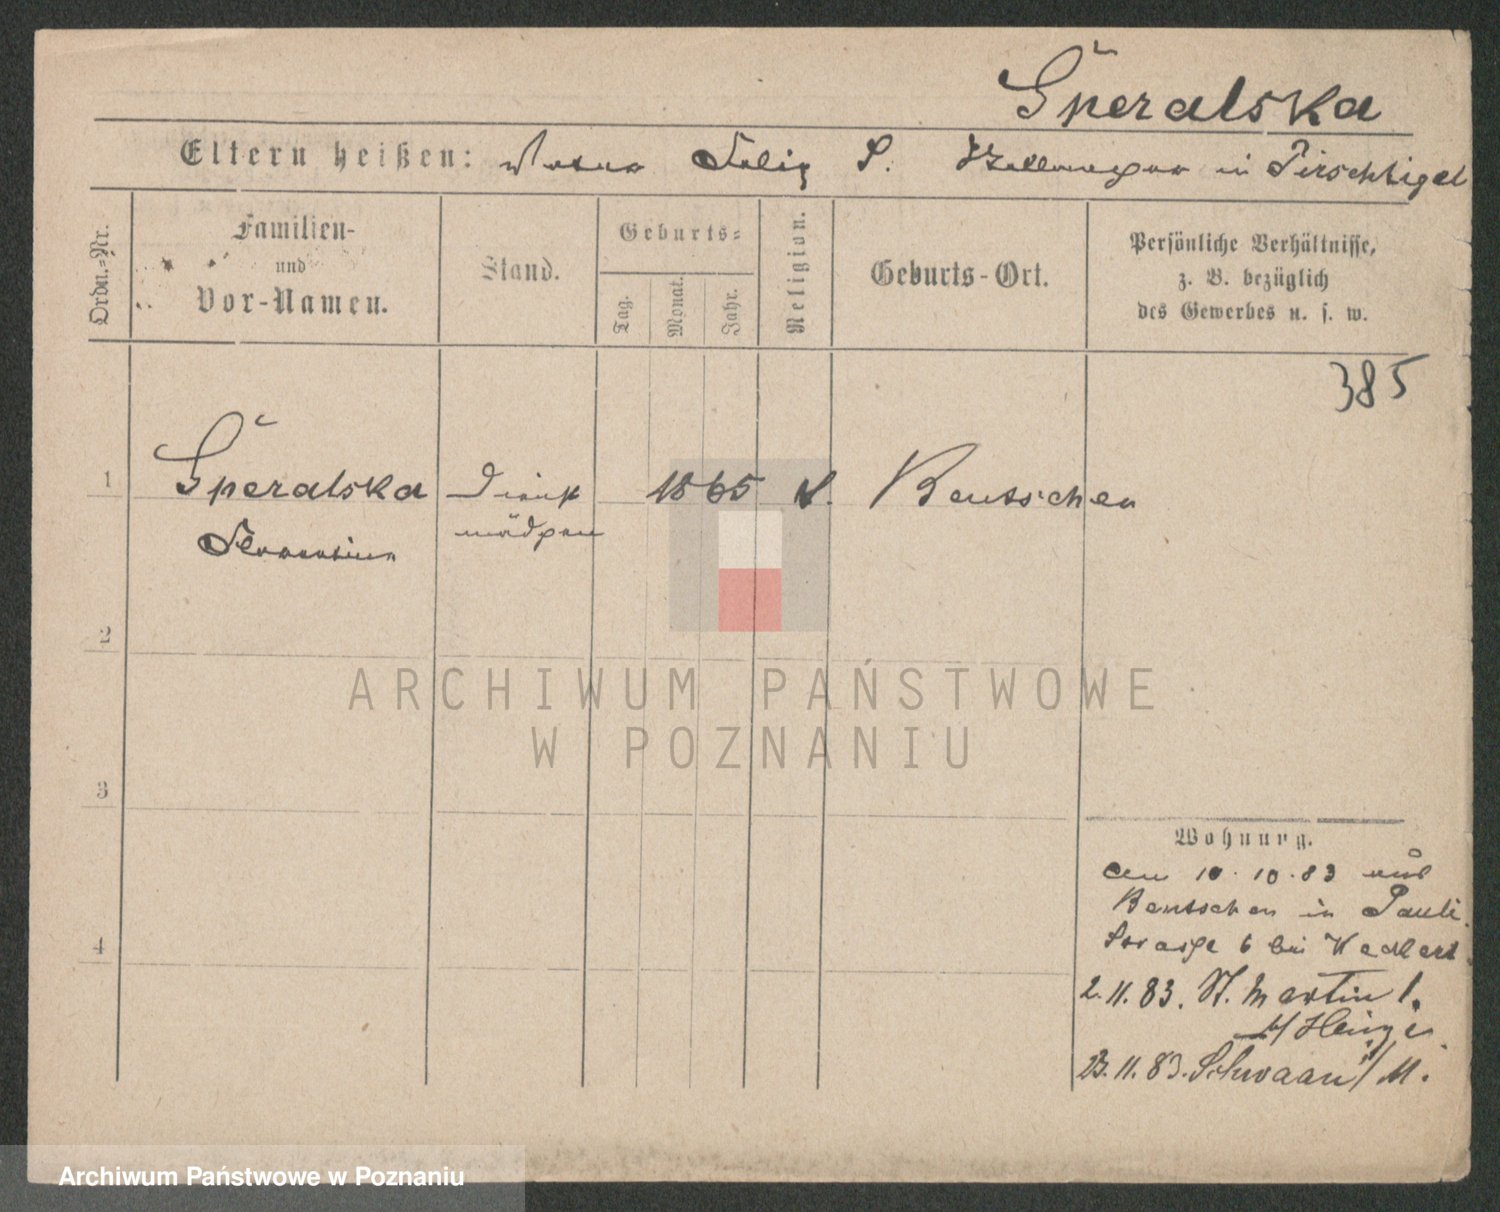 Śperalska
Eltern heißen: Vater Felix S. in Tirschtigel
Ordn.=Nr.
Familien-
und
Vor-Namen.
Stand.
Geburts=
Tag.
Monat.
Jahr.
Religion.
Geburts-Ort.
Persönliche Verhältnisse,
z. B. bezüglich
des Gewerbes u. s. w.
385
1 Śperalska Dienst 1865 Bentschen
Florentina mädchen
2
ARCHIWUM PAŃSTWOWE
W POZNANIU
3
Wohnung.
am 10.10.83 aus
Bentschen in Pauli
4 Strasse 6 bei
2.11.83. St. Martin 1.
b/ Heinze.
23.11.83. Schwaan/M.
Archiwum Państwowe w Poznaniu